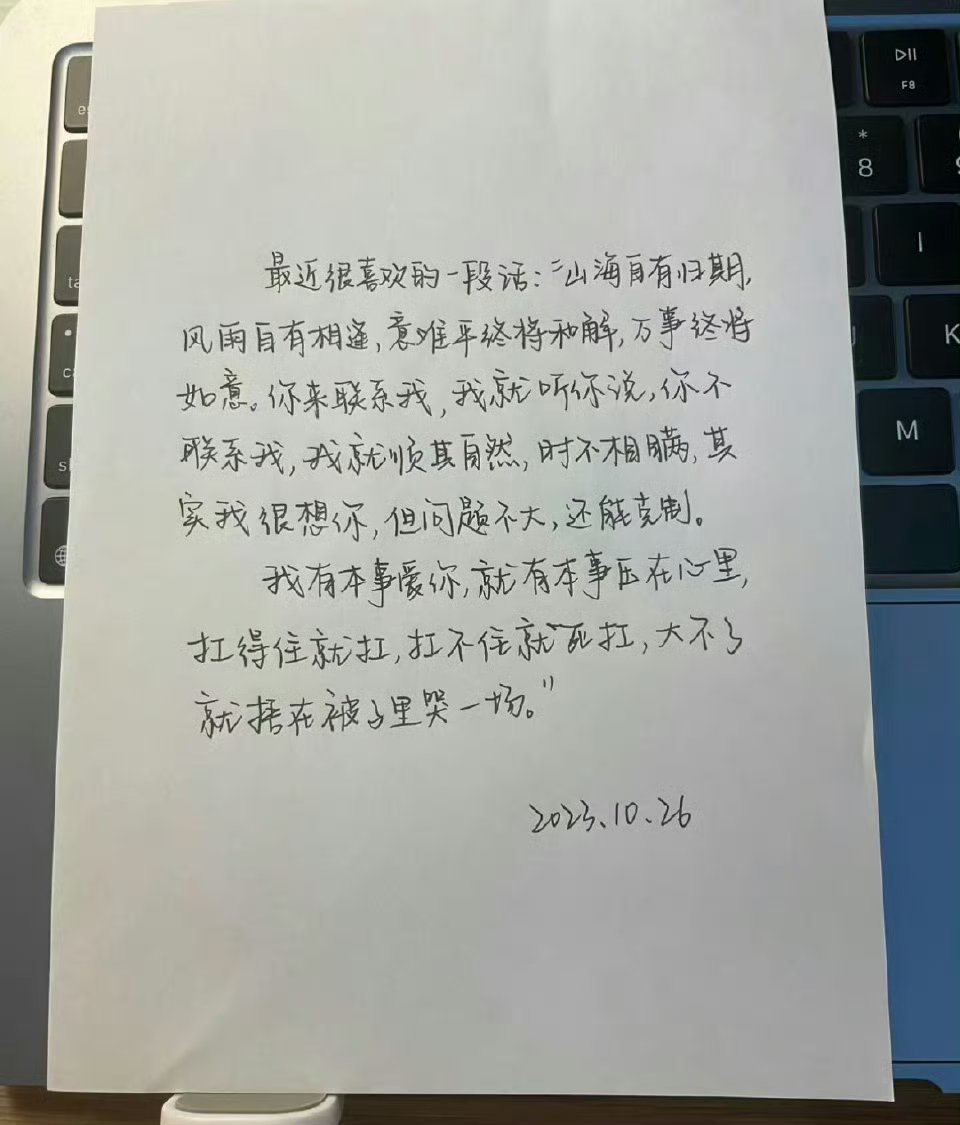 最近很喜欢的一段话:“山海自有归期,
风雨自有相逢,意难平终将和解,万事终将
如意。你来联系我,我就听你说,你不
联系我,我就顺其自然,时不相瞒,其
实我很想你,但问题不大,还能克制。
我有本事爱你,就有本事压在心里,
扛得住就扛,扛不住就死扛,大不了
就捂在被子里哭一场。”
2023.10.26
F8
*
8
I
K
M